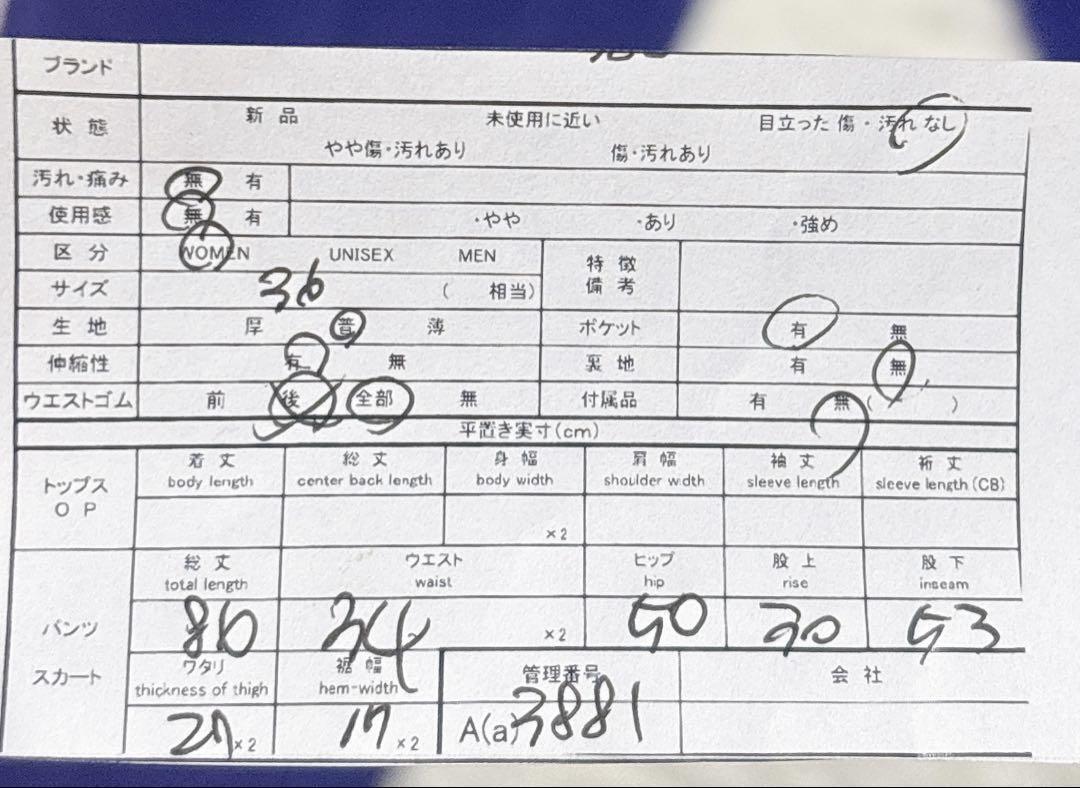 ブランド
状態 新品 未使用に近い 目立った傷・汚れなし
やや傷・汚れあり 傷・汚れあり
汚れ・痛み 無 有
使用感 無 有 ・やや ・あり ・強め
区分 WOMEN UNISEX MEN 特徴備考
サイズ 36 ( 相当)
生地 厚 普 薄 ポケット 有 無
伸縮性 有 無 裏地 有 無
ウエストゴム 前 後 全部 無 付属品 有 無 ( )
平置き実寸(cm)
トップス OP 着丈 総丈 身幅 肩幅 袖丈 裄丈
body length center back length body width shoulder width sleeve length sleeve length (CB)
×2
パンツ スカート 総丈 ウエスト ヒップ 股上 股下
total length waist hip rise inseam
86 34 ×2 50 30 53
ワタリ 裾幅 管理番号 会社
thickness of thigh hem-width
×2 17 ×2 A(a) 3881